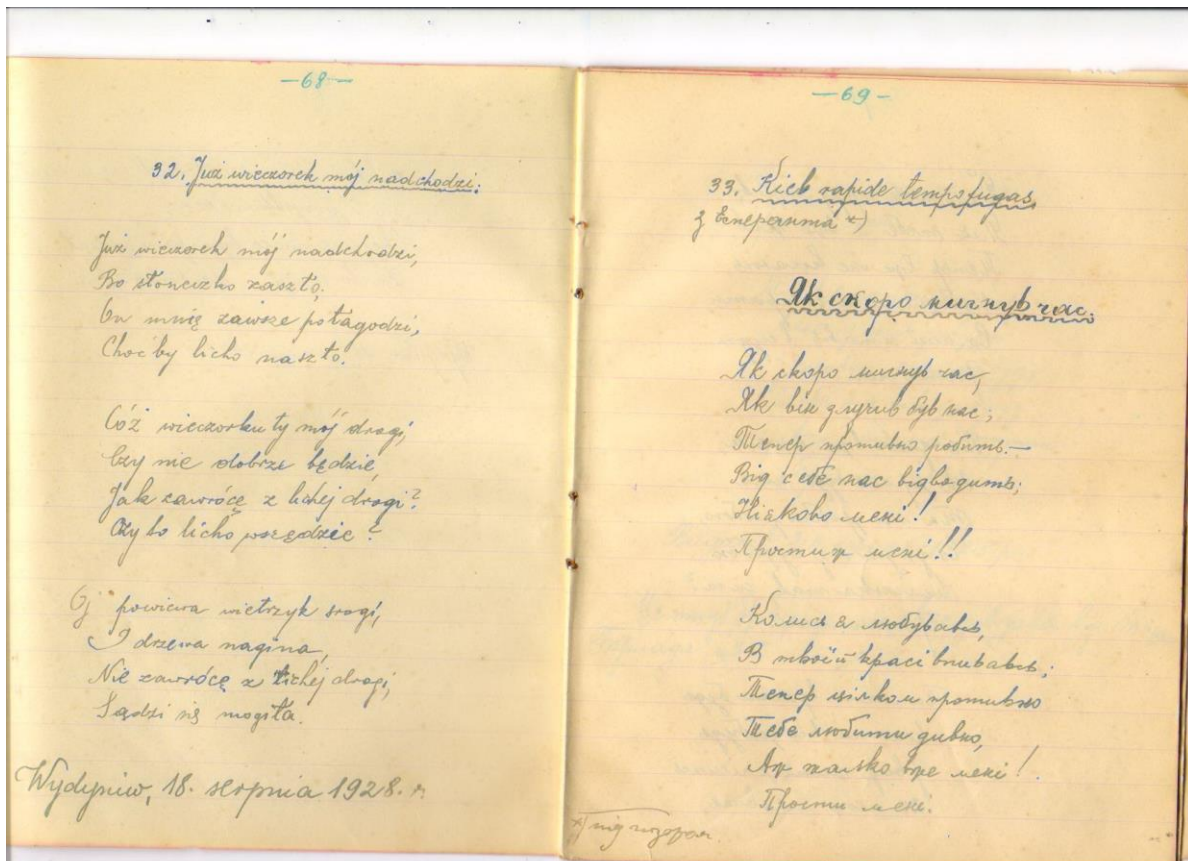 —68—
32. Już wieczorek mój nadchodzi.
Już wieczorek mój nadchodzi,
Bo słoneczko zaszło.
On mnię zawsze połagodzi,
Choćby licho naszło.
Cóż wieczorku ty mój drogi,
Czy nie dobrze będzie,
Jak zawrócę z lichej drogi?
Czy to licho wszędzie?
Oj powiewa wietrzyk srogi,
I drzewa nagina,
Nie zawrócę z lichej drogi,
Sądzi się mogiła.
Wydyniw, 18. serpnia 1928. r.
—69—
33. Kiel rapide tempo fugas,
з Есперанта *)
Як скоро мигнув час.
Як скоро мигнув час,
Як він злучив був нас;
Тепер противно робить.—
Від себе нас відводить;
Ніяково мені!
Прости ж мені!!
Колись я любувавсь,
В твоїй красі впивавсь;
Тепер цілком противно
Тебе любити дивно,
Аж жалько вже мені!
Прости мені.
*) під